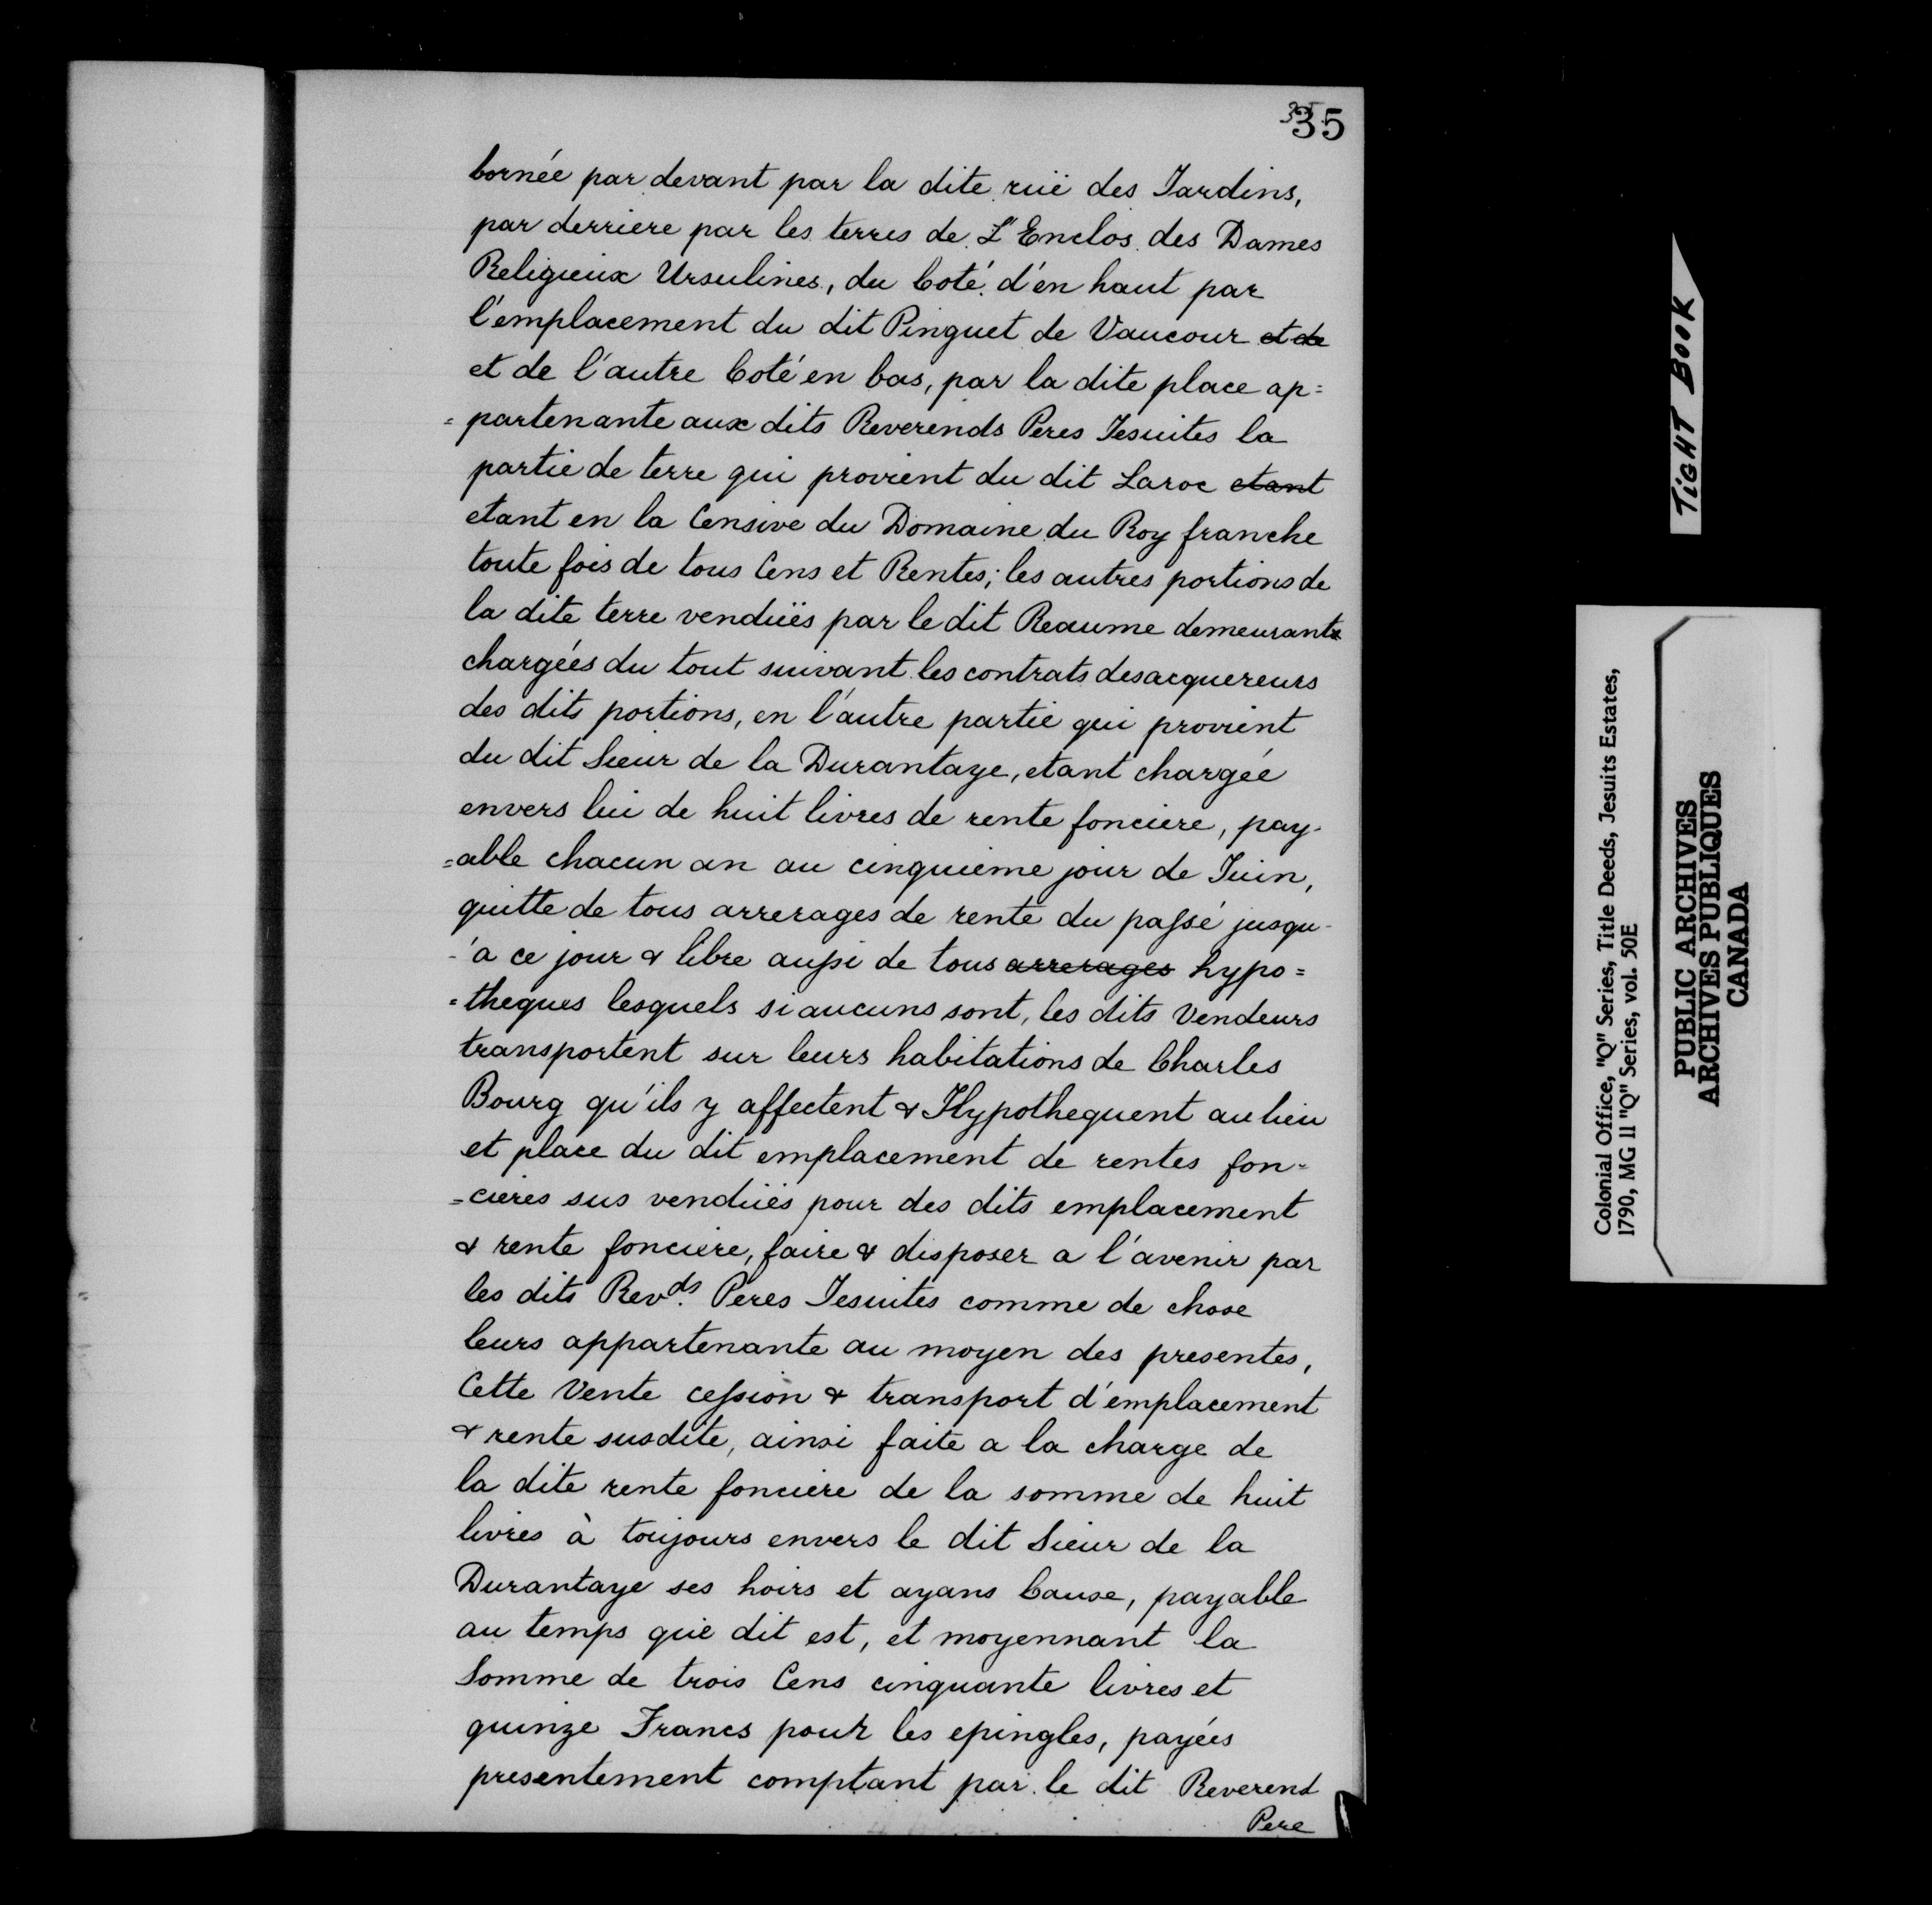 35
bornée par devant par la dite ruë des Jardins,
par derriere par les terres de L'Enclos des Dames
Religieux Ursulines, du Coté d'en haut par
l'emplacement du dit Pinguet de Vaucour et de
et de l'autre Coté en bas, par la dite place ap=
=partenante aux dits Reverends Peres Jesuites la
partie de terre qui provient du dit Laroc etant
etant en la Censive du Domaine du Roy franche
toute fois de tous Cens et Rentes; les autres portions de
la dite terre venduës par le dit Reaume demeurant
chargées du tout suivant les contrats des acquereurs
des dits portions, en l'autre partie qui provient
du dit Sieur de la Durantaye, etant chargée
envers lui de huit livres de rente fonciere, pay-
=able chacun an au cinquieme jour de Juin,
quitte de tous arrerages de rente du passé jusqu-
-'a ce jour & libre aussi de tous arrerages hypo=
=theques lesquels si aucuns sont, les dits Vendeurs
transportent sur leurs habitations de Charles
Bourg qu'ils y affectent & Hypothequent au lieu
et place du dit emplacement de rentes fon=
=cieres sus venduës pour des dits emplacement
& rente fonciere, faire & disposer a l'avenir par
les dits Revds. Peres Jesuites comme de chose
leurs appartenante au moyen des presentes,
Cette Vente cession & transport d'emplacement
& rente susdite, ainsi faite a la charge de
la dite rente fonciere de la somme de huit
livres à toujours envers le dit Sieur de la
Durantaye ses hoirs et ayans Cause, payable
au temps que dit est, et moyennant la
Somme de trois Cens cinquante livres et
quinze Francs pour les epingles, payées
presentement comptant par le dit Reverend
Pere
TIGHT BOOK
Colonial Office, "Q" Series, Title Deeds, Jesuits Estates,
1790, MG 11 "Q" Series, vol. 50E
PUBLIC ARCHIVES
ARCHIVES PUBLIQUES
CANADA